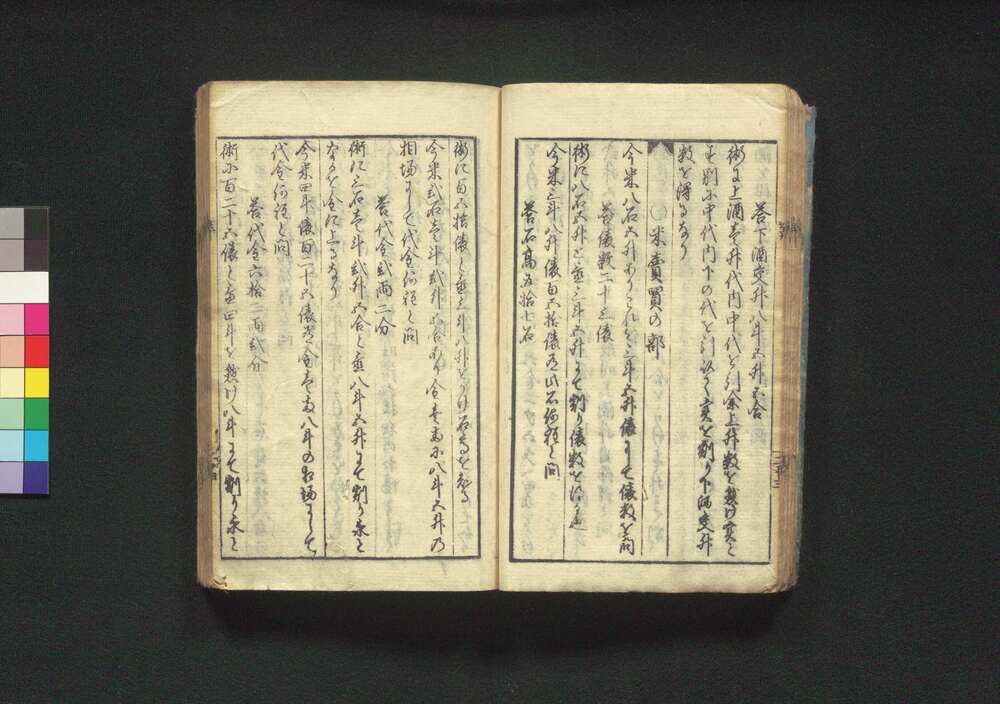 答下酒交升八斗五升五合
術に上酒壱升代内中代を引余上升数を懸け実と
す別に中代内下の代を引以て実を割り下酒交升
数を得るなり
米売買の部
今米八石五升ありこれを三斗五升俵にして俵数を問
答俵数二十三俵
術に八石五升と置三斗五升にて割り俵数を得る
今米三斗八升俵百五拾俵有此石何程と問
答石高五拾七石
術に百五拾俵と置三斗八升をかけ石高を
今米弐石壱斗弐升五合あり金壱両に八斗五升の
相場にして代金何程と問
答代金弐両二分
術に弐石壱斗弐升五合と置八斗五升にて割り永と
なるを金に上るなり
今米四斗俵百二十五俵有金壱両八斗の相場にして
代金何程と問
答代金六拾二両弐分
術に百二十五俵と置四斗を懸け八斗にて割り永と